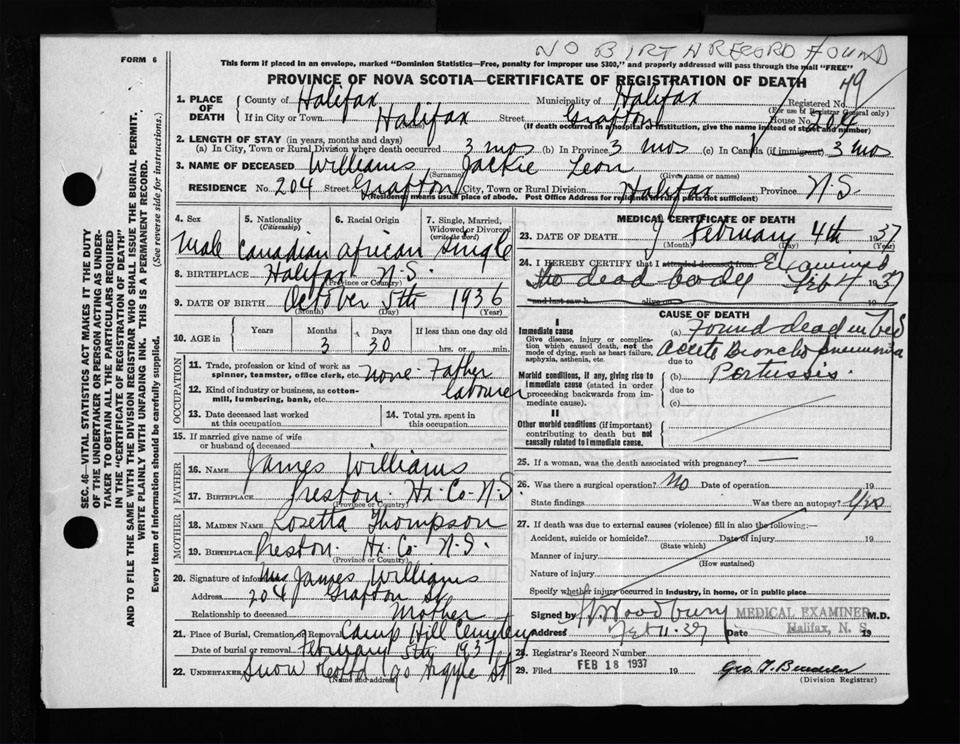 NO BIRTH RECORD FOUND
FORM 6
This form if placed in an envelope, marked "Dominion Statistics—Free, penalty for improper use $300," and properly addressed will pass through the mail "FREE"
PROVINCE OF NOVA SCOTIA—CERTIFICATE OF REGISTRATION OF DEATH
79
1. PLACE OF DEATH
County of Halifax Municipality of Halifax Registered No.
(For use of Registrar General only)
If in City or Town Halifax Street Grafton House No. 204
(Name)
(If death occurred in a hospital or institution, give the name instead of street and number)
2. LENGTH OF STAY (in years, months and days)
(a) In City, Town or Rural Division where death occurred 3 mos (b) In Province 3 mos (c) In Canada (if immigrant) 3 mos
3. NAME OF DECEASED Williams Jackie Leon
(Surname) (Given name or names)
RESIDENCE No. 204 Street Grafton City, Town or Rural Division Halifax Province N.S.
(Residence means usual place of abode. Post Office Address for residents in rural parts not sufficient)
4. Sex 5. Nationality (Citizenship) 6. Racial Origin 7. Single, Married, Widowed or Divorced (write the word)
Male Canadian African Single
8. BIRTHPLACE Halifax N.S.
(Province or Country)
9. DATE OF BIRTH October 5th 1936
(Month) (Day) (Year)
10. AGE in Years Months Days If less than one day old
3 30 hrs. or min.
OCCUPATION
11. Trade, profession or kind of work as spinner, teamster, office clerk, etc. none - Father
12. Kind of industry or business, as cotton-mill, lumbering, bank, etc. labourer
13. Date deceased last worked at this occupation
14. Total yrs. spent in this occupation
15. If married give name of wife or husband of deceased
FATHER
16. NAME James Williams
17. BIRTHPLACE Preston Hx. Co. N.S.
(Province or Country)
MOTHER
18. MAIDEN NAME Rosetta Thompson
19. BIRTHPLACE Preston Hx. Co. N.S.
(Province or Country)
20. Signature of informant Mrs James Williams
Address 204 Grafton St
Relationship to deceased Mother
21. Place of Burial, Cremation or Removal Camp Hill Cemetery
Date of burial or removal February 5th 1937
22. UNDERTAKER Snow & Co Ltd 90 Argyle St
(Name and address)
MEDICAL CERTIFICATE OF DEATH
23. DATE OF DEATH February 4th 1937
(Month) (Day) (Year)
24. I HEREBY CERTIFY that I attended deceased from Examined
the dead body Feb 4 1937
and last saw h alive on 19
CAUSE OF DEATH
I
Immediate cause (a) Found dead in bed
Give disease, injury or complication which caused death, not the mode of dying, such as heart failure, asphyxia, asthenia, etc.
Acute Broncho pneumonia
due to
Morbid conditions, if any, giving rise to immediate cause (stated in order proceeding backwards from immediate cause).
(b) Pertussis.
due to
(c)
II
Other morbid conditions (if important) contributing to death but not causally related to immediate cause.
25. If a woman, was the death associated with pregnancy? —
26. Was there a surgical operation? No Date of operation 19
State findings Was there an autopsy? Yes
27. If death was due to external causes (violence) fill in also the following:—
Accident, suicide or homicide? Date of injury 19
(State which)
Manner of injury
(How sustained)
Nature of injury
Specify whether injury occurred in Industry, in home, or in public place
Signed by Woodbury MEDICAL EXAMINER M.D.
Address Feb 11. 37 Date Halifax, N. S. 19
28. Registrar's Record Number
29. Filed FEB 18 1937 19
(Division Registrar)
SEC. 46—VITAL STATISTICS ACT MAKES IT THE DUTY
OF THE UNDERTAKER OR PERSON ACTING AS UNDER-
TAKER TO OBTAIN ALL THE PARTICULARS REQUIRED
IN THE "CERTIFICATE OF REGISTRATION OF DEATH"
AND TO FILE THE SAME WITH THE DIVISION REGISTRAR WHO SHALL ISSUE THE BURIAL PERMIT.
WRITE PLAINLY WITH UNFADING INK. THIS IS A PERMANENT RECORD.
Every item of information should be carefully supplied. (See reverse side for instructions.)